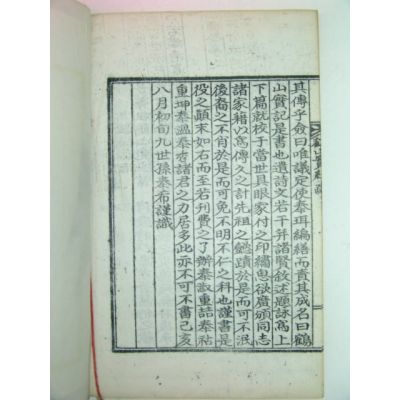 其傳乎僉曰唯議定使泰珥編繕而責其成名曰鶴
山實記是書也遺詩文若干幷諸賢敘述題詠寫上
下篇就校于當世具眼家付之印繩思欲廣頒同志
諸家藉以寫傳久之計先祖之懿蹟於是而可不泯
後裔之不肖於是而可免不明不仁之科也謹書是
役之顚末如右而至若刋費之了辦泰淑重喆泰祐
重坤泰溫泰杏諸君之力居多此亦不可不書己亥
八月初旬九世孫泰布謹識